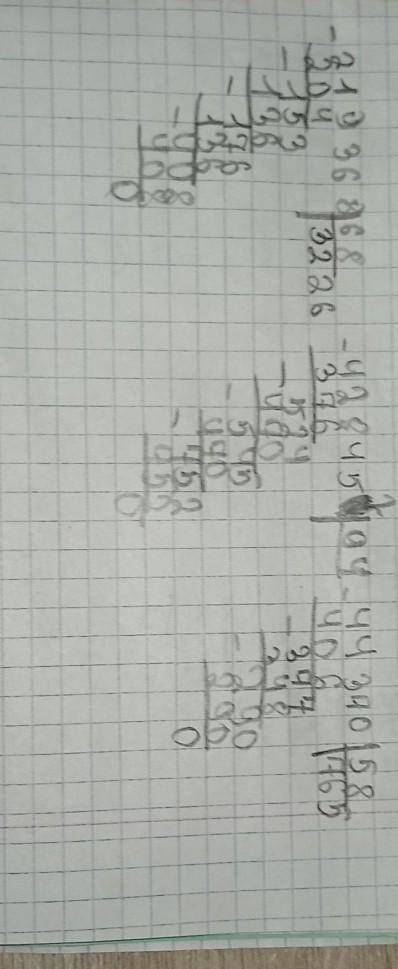 -219368|68
204 3226
-153
136
-176
136
-408
408
0
-428452|94
376
-524
470
-545
470
-752
752
0
-44370|58
406 765
-377
348
-290
290
0